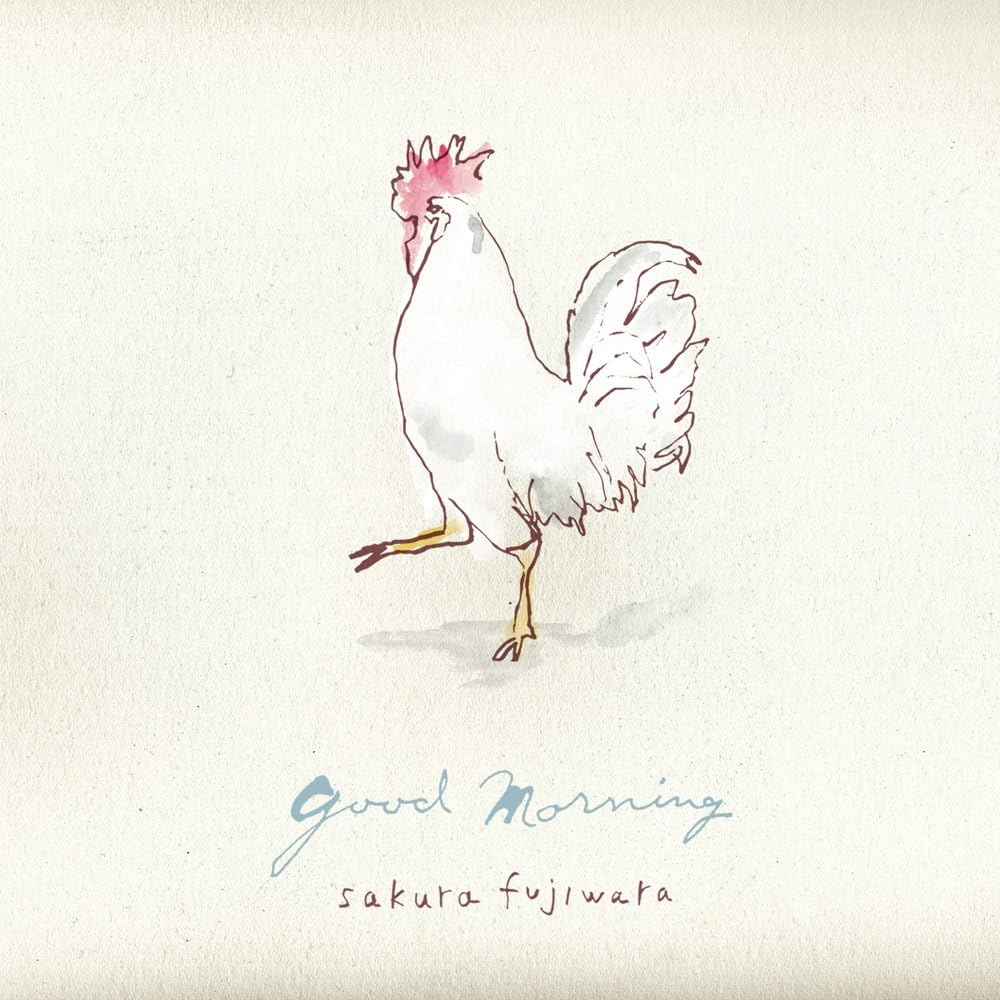 good Morning
sakura fujiwara